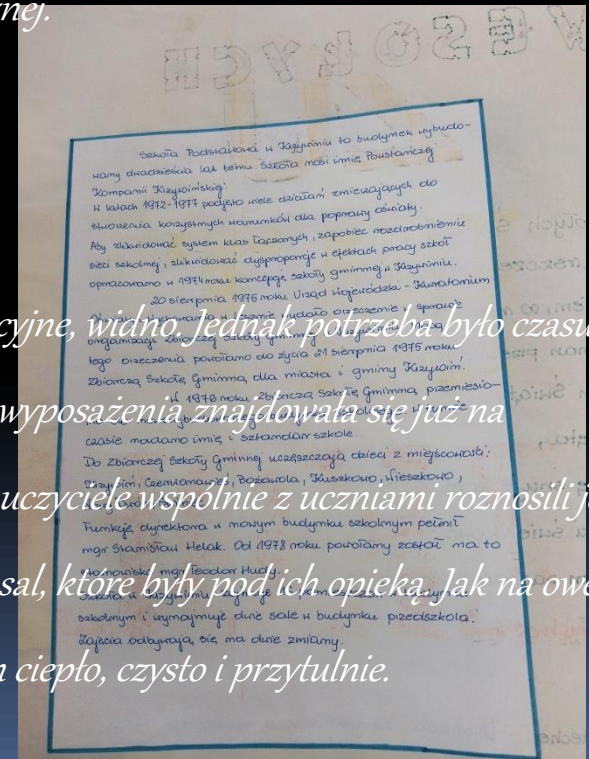 nej.
WESOŁYCH
Szkoła Podstawowa w Krzywiniu to budynek wybudo-
wany dwadzieścia lat temu. Szkoła nosi imię Powstańczej
Kompanii Krzywińskiej.
W latach 1972-1977 podjęto wiele działań zmierzających do
stworzenia korzystnych warunków dla poprawy oświaty.
Aby zlikwidować system klas łączonych, zapobiec rozdrobnieniu
sieci szkolnej, zlikwidować dysproporcje w efektach pracy szkół
opracowano w 1974 roku koncepcję szkoły gminnej w Krzywiniu.
20 sierpnia 1975 roku Urząd Wojewódzki - Kuratorium
w Lesznie wydało orzeczenie w sprawie
cyjne, widno. Jednak potrzeba było czasu
organizacji Zbiorczej Szkoły Gminnej w
tego orzeczenia powołano do życia 21 sierpnia 1975 roku
Zbiorczą Szkołę Gminną dla miasta i gminy Krzywiń.
W 1978 roku Zbiorczą Szkołę Gminną przeniesio-
wyposażenia znajdowała się już na
czasie nadano imię i sztandar szkole.
Do Zbiorczej Szkoły Gminnej uczęszczają dzieci z miejscowości:
Krzywiń, Czerwona Wieś, Bożawola, Kuszkowo, Wieszkowo,
uczyciele wspólnie z uczniami roznosili
Funkcję dyrektora w nowym budynku szkolnym pełnił
mgr Stanisław Helak. Od 1978 roku powołany został na to
stanowisko mgr Teodor Hudy.
sal, które były pod ich opieką. Jak na owe
szkolnym i wynajmuje dwie sale w budynku przedszkola.
Zajęcia odbywają się na dwie zmiany.
ciepło, czysto i przytulnie.